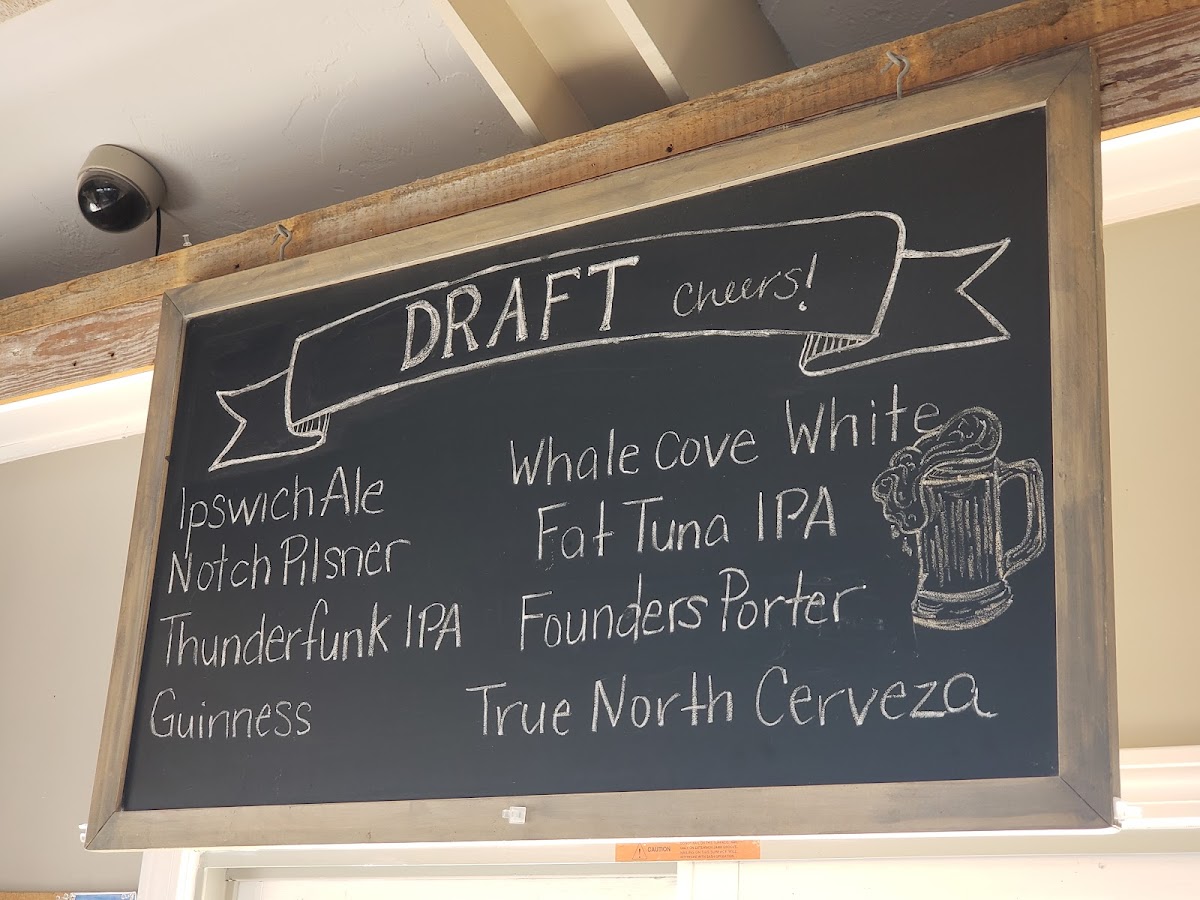 DRAFT cheers!
Ipswich Ale
Notch Pilsner
Thunderfunk IPA
Guinness
Whale Cove White
Fat Tuna IPA
Founders Porter
True North Cerveza
CAUTION